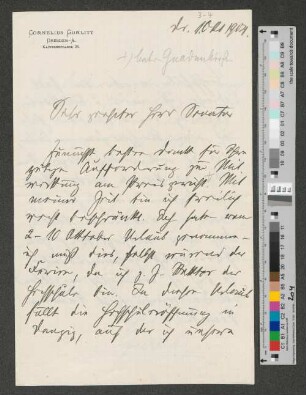 CORNELIUS GURLITT
DRESDEN-A.
Dr. 1904.
Sehr geehrter Herr Senator
Zunächst besten Dank für Ihre
gütige Aufforderung zur Mit
wirkung am Preisgericht. Mit
meiner Zeit bin ich freilich
recht beschränkt. Ich habe vom
2-10 Oktober Urlaub genommen
ich muß dies, selbst während der
Ferien, da ich z. Z. Rektor der
Hochschule bin. In diesen Urlaub
fällt die Hochschuleröffnung in
Danzig, auf der ich unsere